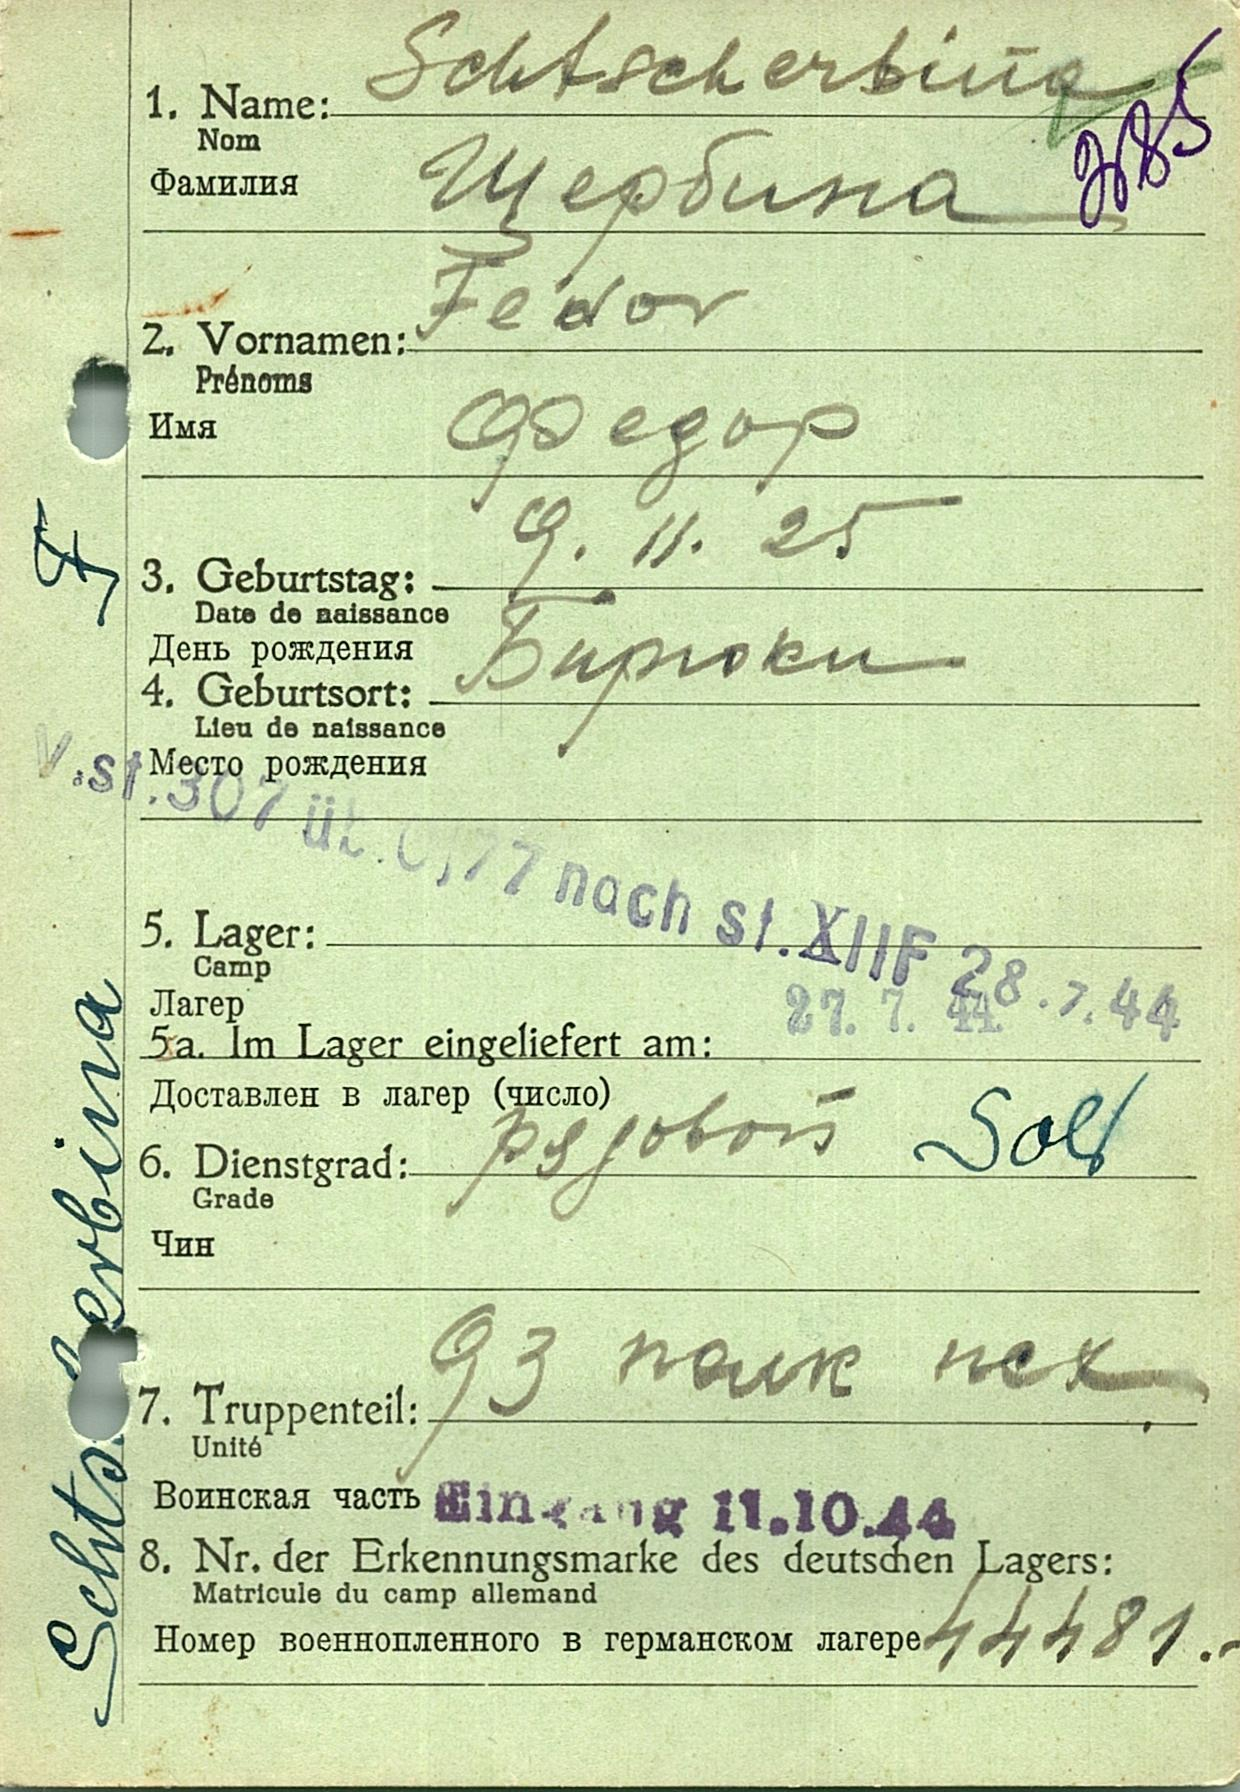 Schtscherbina
1. Name:
Nom
385
Фамилия Щербина
Fedor
2. Vornamen:
Prénoms
Имя Федор
9. 11. 25
3. Geburtstag:
Date de naissance
День рождения Бирюки
4. Geburtsort:
Lieu de naissance
Место рождения
V.st.307 üb. nach st.XIIF 28.7.44
5. Lager:
Camp
Лагер
27. 7. 44
5a. Im Lager eingeliefert am:
Доставлен в лагер (число)
Sold
6. Dienstgrad:
Grade
Чин
93 полк пех.
7. Truppenteil:
Unité
Воинская часть Eingang 11.10.44
8. Nr. der Erkennungsmarke des deutschen Lagers:
Matricule du camp allemand
Номер военнопленного в германском лагере 44481.-
Schtscherbina F